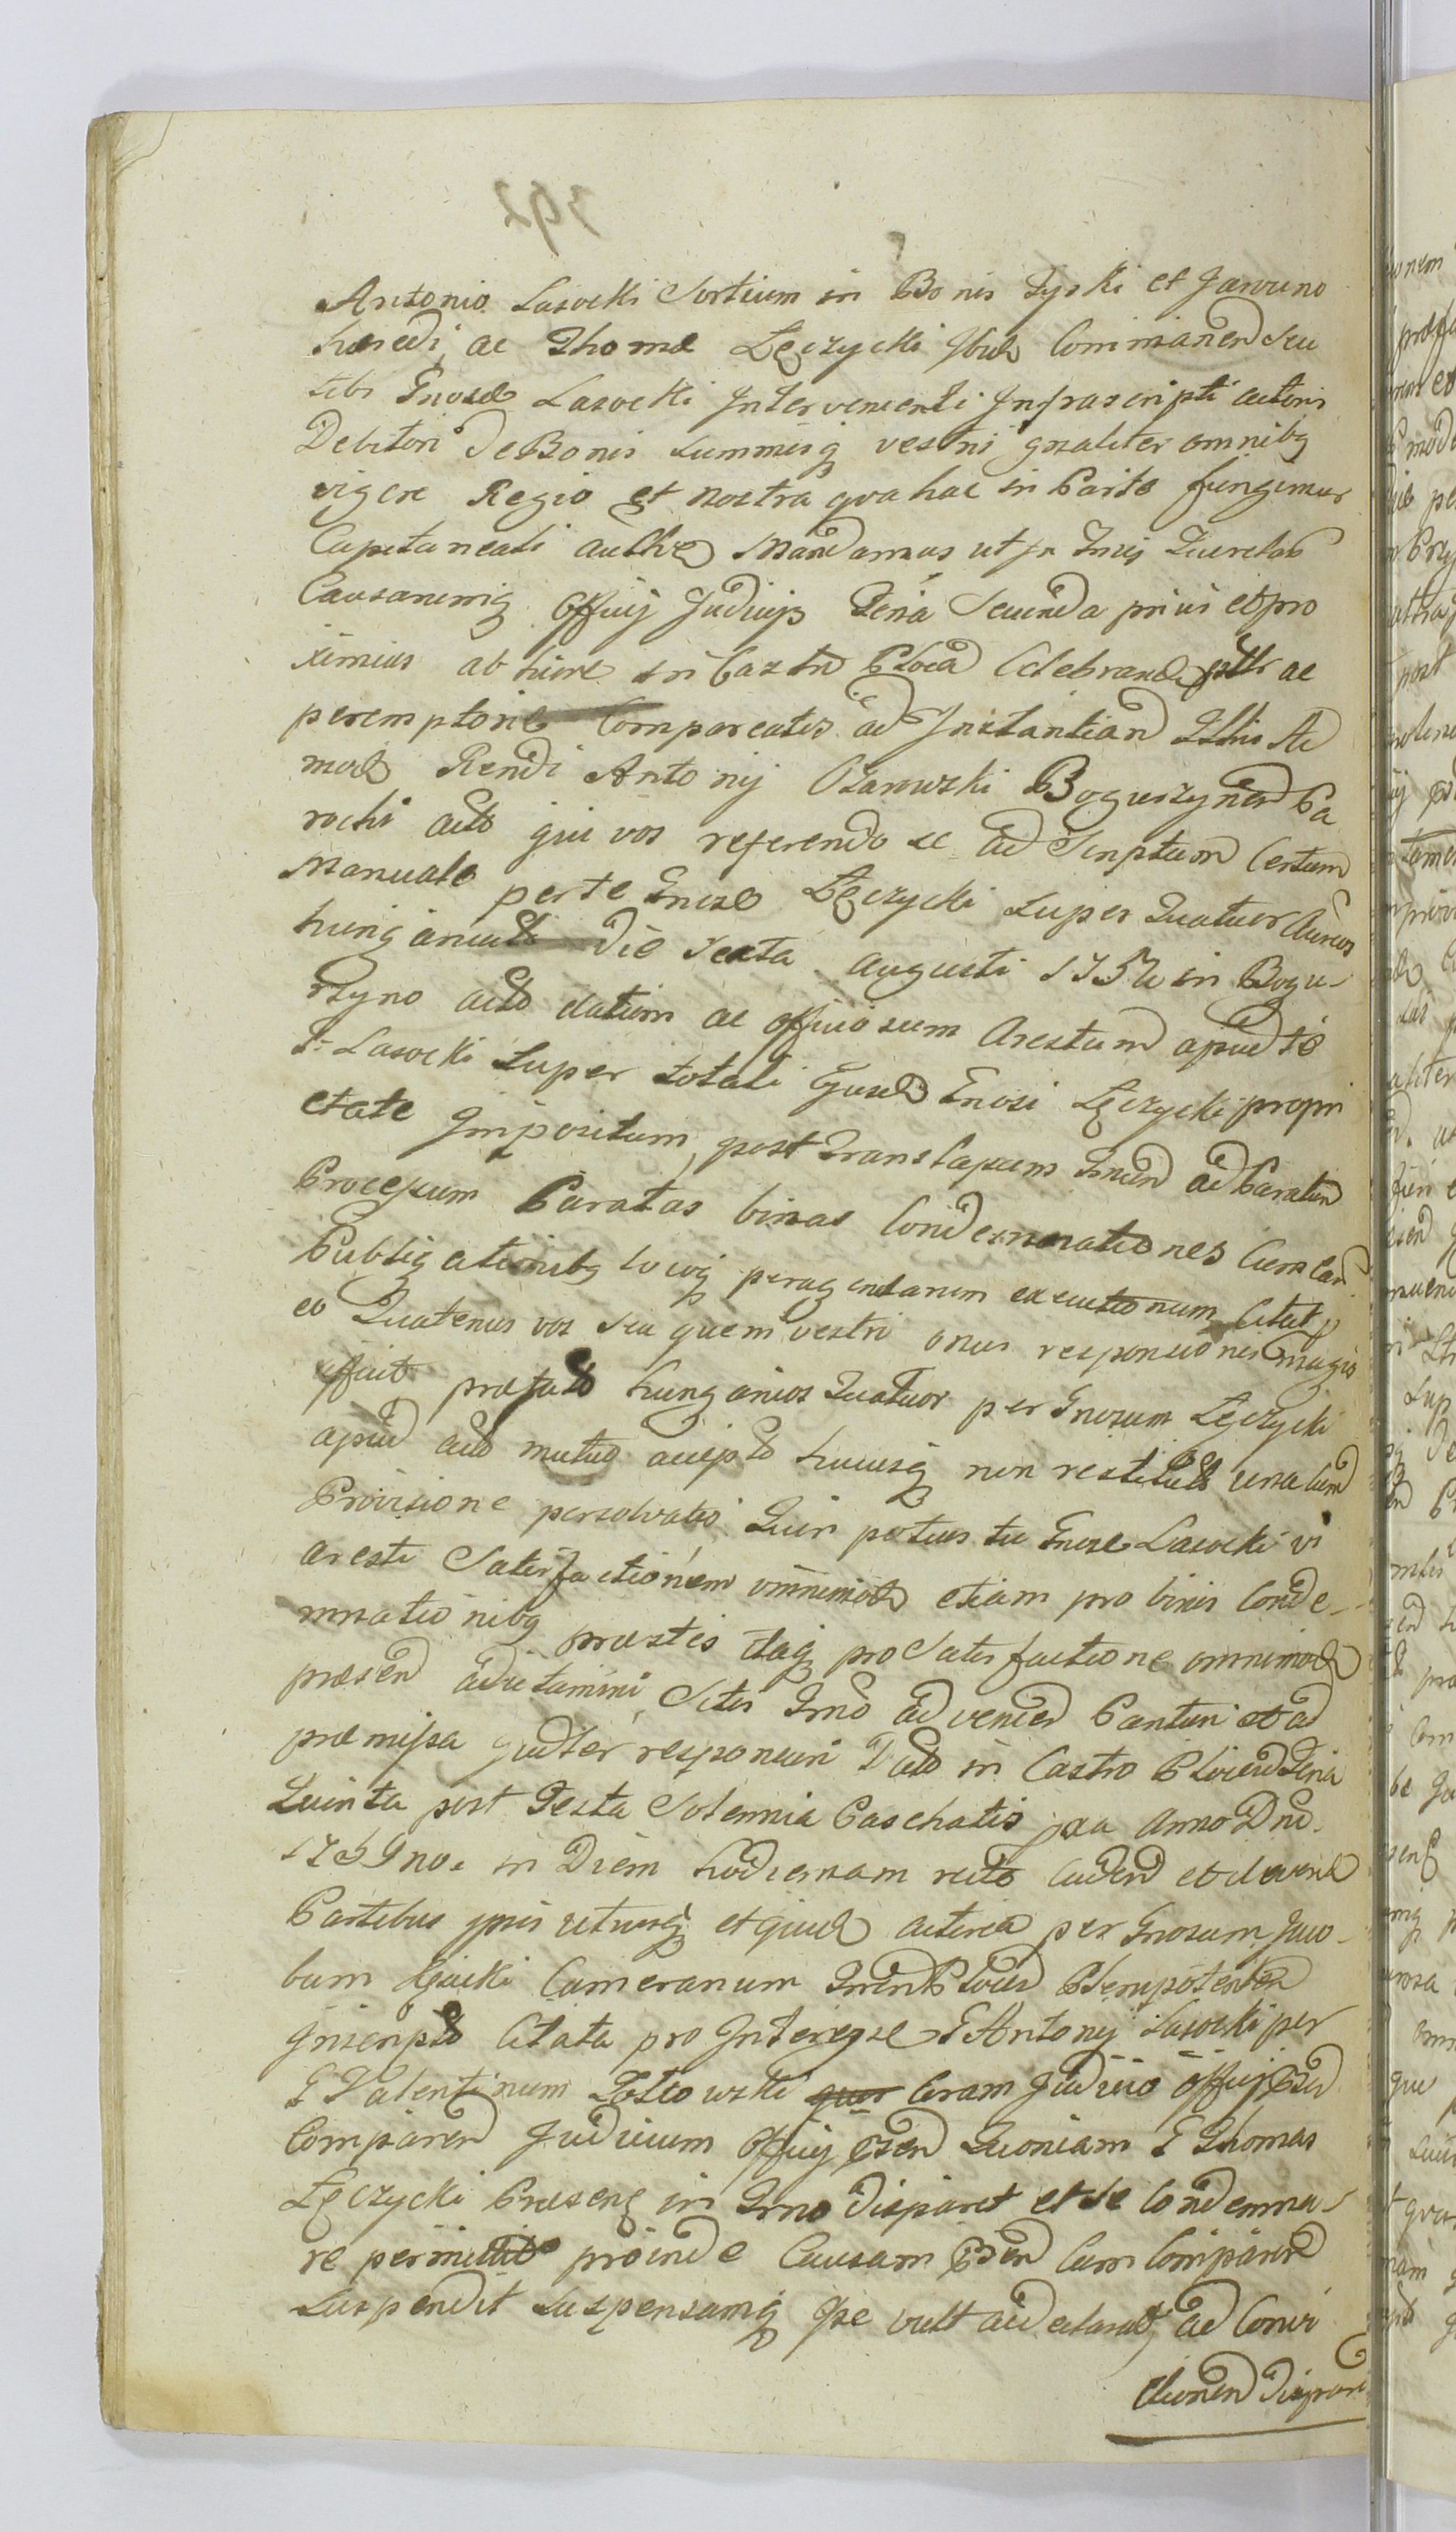 392
Antonio Lasocki Sortium in Bonis Lyski et Jaroruno
hæredi, ac Thomæ Łęczycki Ibid Commanen seu
tibi Gnose Lasocki Intervenienti Infrascripti actoris
Debitori de Bonis Summisq vestris gnaliter omnibq
vigore Regio et nostra qva hac in Parte fungimur
Capitaneali autthe Mandamus ut in Tmis Querelar
Causarumq Officij Judicijs Feria Secunda prius et pro
ximius ab hinc in Castro Ploc Celebrand psltr ac
peremptorie Compareatis ad Instantiam Ilhis Ad
mod Rendi Antonij Ozarowski Boguszynen Pa
rochi acto qui vos referendo se ad Scriptum Certum
Manuale per te Gnose Łęczycki super Quatuor Aureos
hungaric Die Sexta Augusti 175 in Bogu-
szyno acto datum ac officiosum Arestum apud te
G Lasocki super totali Ejusd Gnosi Łęczycki propri
etate Impositum, post Translapsum Tmin ad Paratum
Processum Paratas binas Condemnationes Cum ear
Publicationibq suisq peragendarum executionum Citat p
eo Quatenus vos seu quem vestri onus responsionis magis
afficit præfato hungaricos Quatuor per Gnosum Łęczycki
apud acto mutuo accepto hucusq non restituto una cum
Provisione persolvatis. Quin potius tu Gnose Lasocki vi
Aresti Satisfactionem omnimod etiam pro binis Conde-
mnationibq præstes itaq pro Satisfactione omnimod
præsen adcitamini, Sitis Tmo adveniend Parituri et ad
præmissa judter responsuri Dato in Castro Plocen Feria
Quinta post Festa Solennia Paschatis pxa Anno Dni
1759no. in Diem hodiernam recto caden et deven
Partibus ipsis utrisq et quid actorea per Gnosum Jaco-
bum Camerarium Plocen Plempotenten
Inscripto Citata pro Interesse G Antonij Lasocki per
G Valentinum coram Judicio Officij Psen
Comparen Judicium Officij Psen Quoniam G Thomas
Łęczycki Præsens in Tmo disparet et se Condemna-
re permittit proinde Causam Psen Cum Comparen
Suspendit Suspensamq esse vult ad ad Convi
ctionem disparen